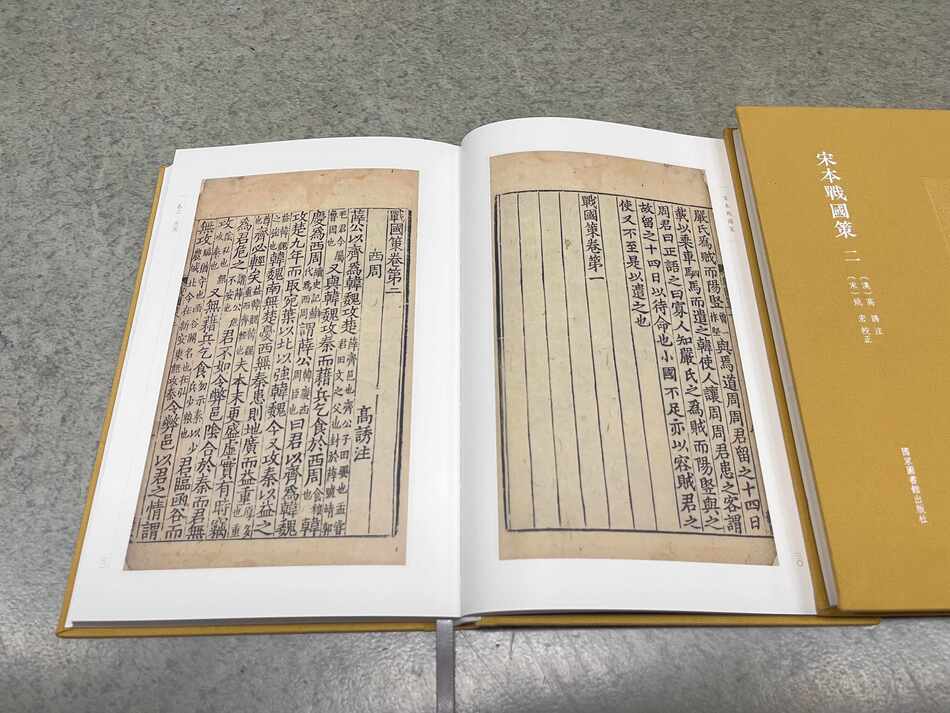 嚴氏爲賊而陽竪與爲道周周君留之十四日
載以乘車駟馬而遣之韓使人讓周周君患之客謂
周君曰正語之曰寡人知嚴氏之爲賊而陽竪與之
故留之十四日以待命也小國不足亦以容賊君之
使又不至是以遣之也
戰國策卷第一
三〇
戰國策卷第二
西周 高誘注
薛公以齊爲韓魏攻楚薛齊邑也齊公子田嬰也孟嘗君田文之父也封於薛號靖郭
君今屬魯國也又與韓魏攻秦而藉兵乞食於西周韓
慶爲西周續史記蘇代爲西周謂薛公韓慶西周臣也曰君以齊爲韓魏
攻楚九年而取宛葉以北以強韓魏今又攻秦以益之
韓魏南無楚憂西無秦患則地廣而益重
齊必輕矣夫本末更盛虛實有時竊
爲君危之君不如令弊邑陰合於秦而君無
攻又無藉兵乞食君臨函谷而
無攻令弊邑以君之情謂
宋本戰國策 二
〔漢〕高誘 注
〔宋〕姚宏 校正
國家圖書館出版社